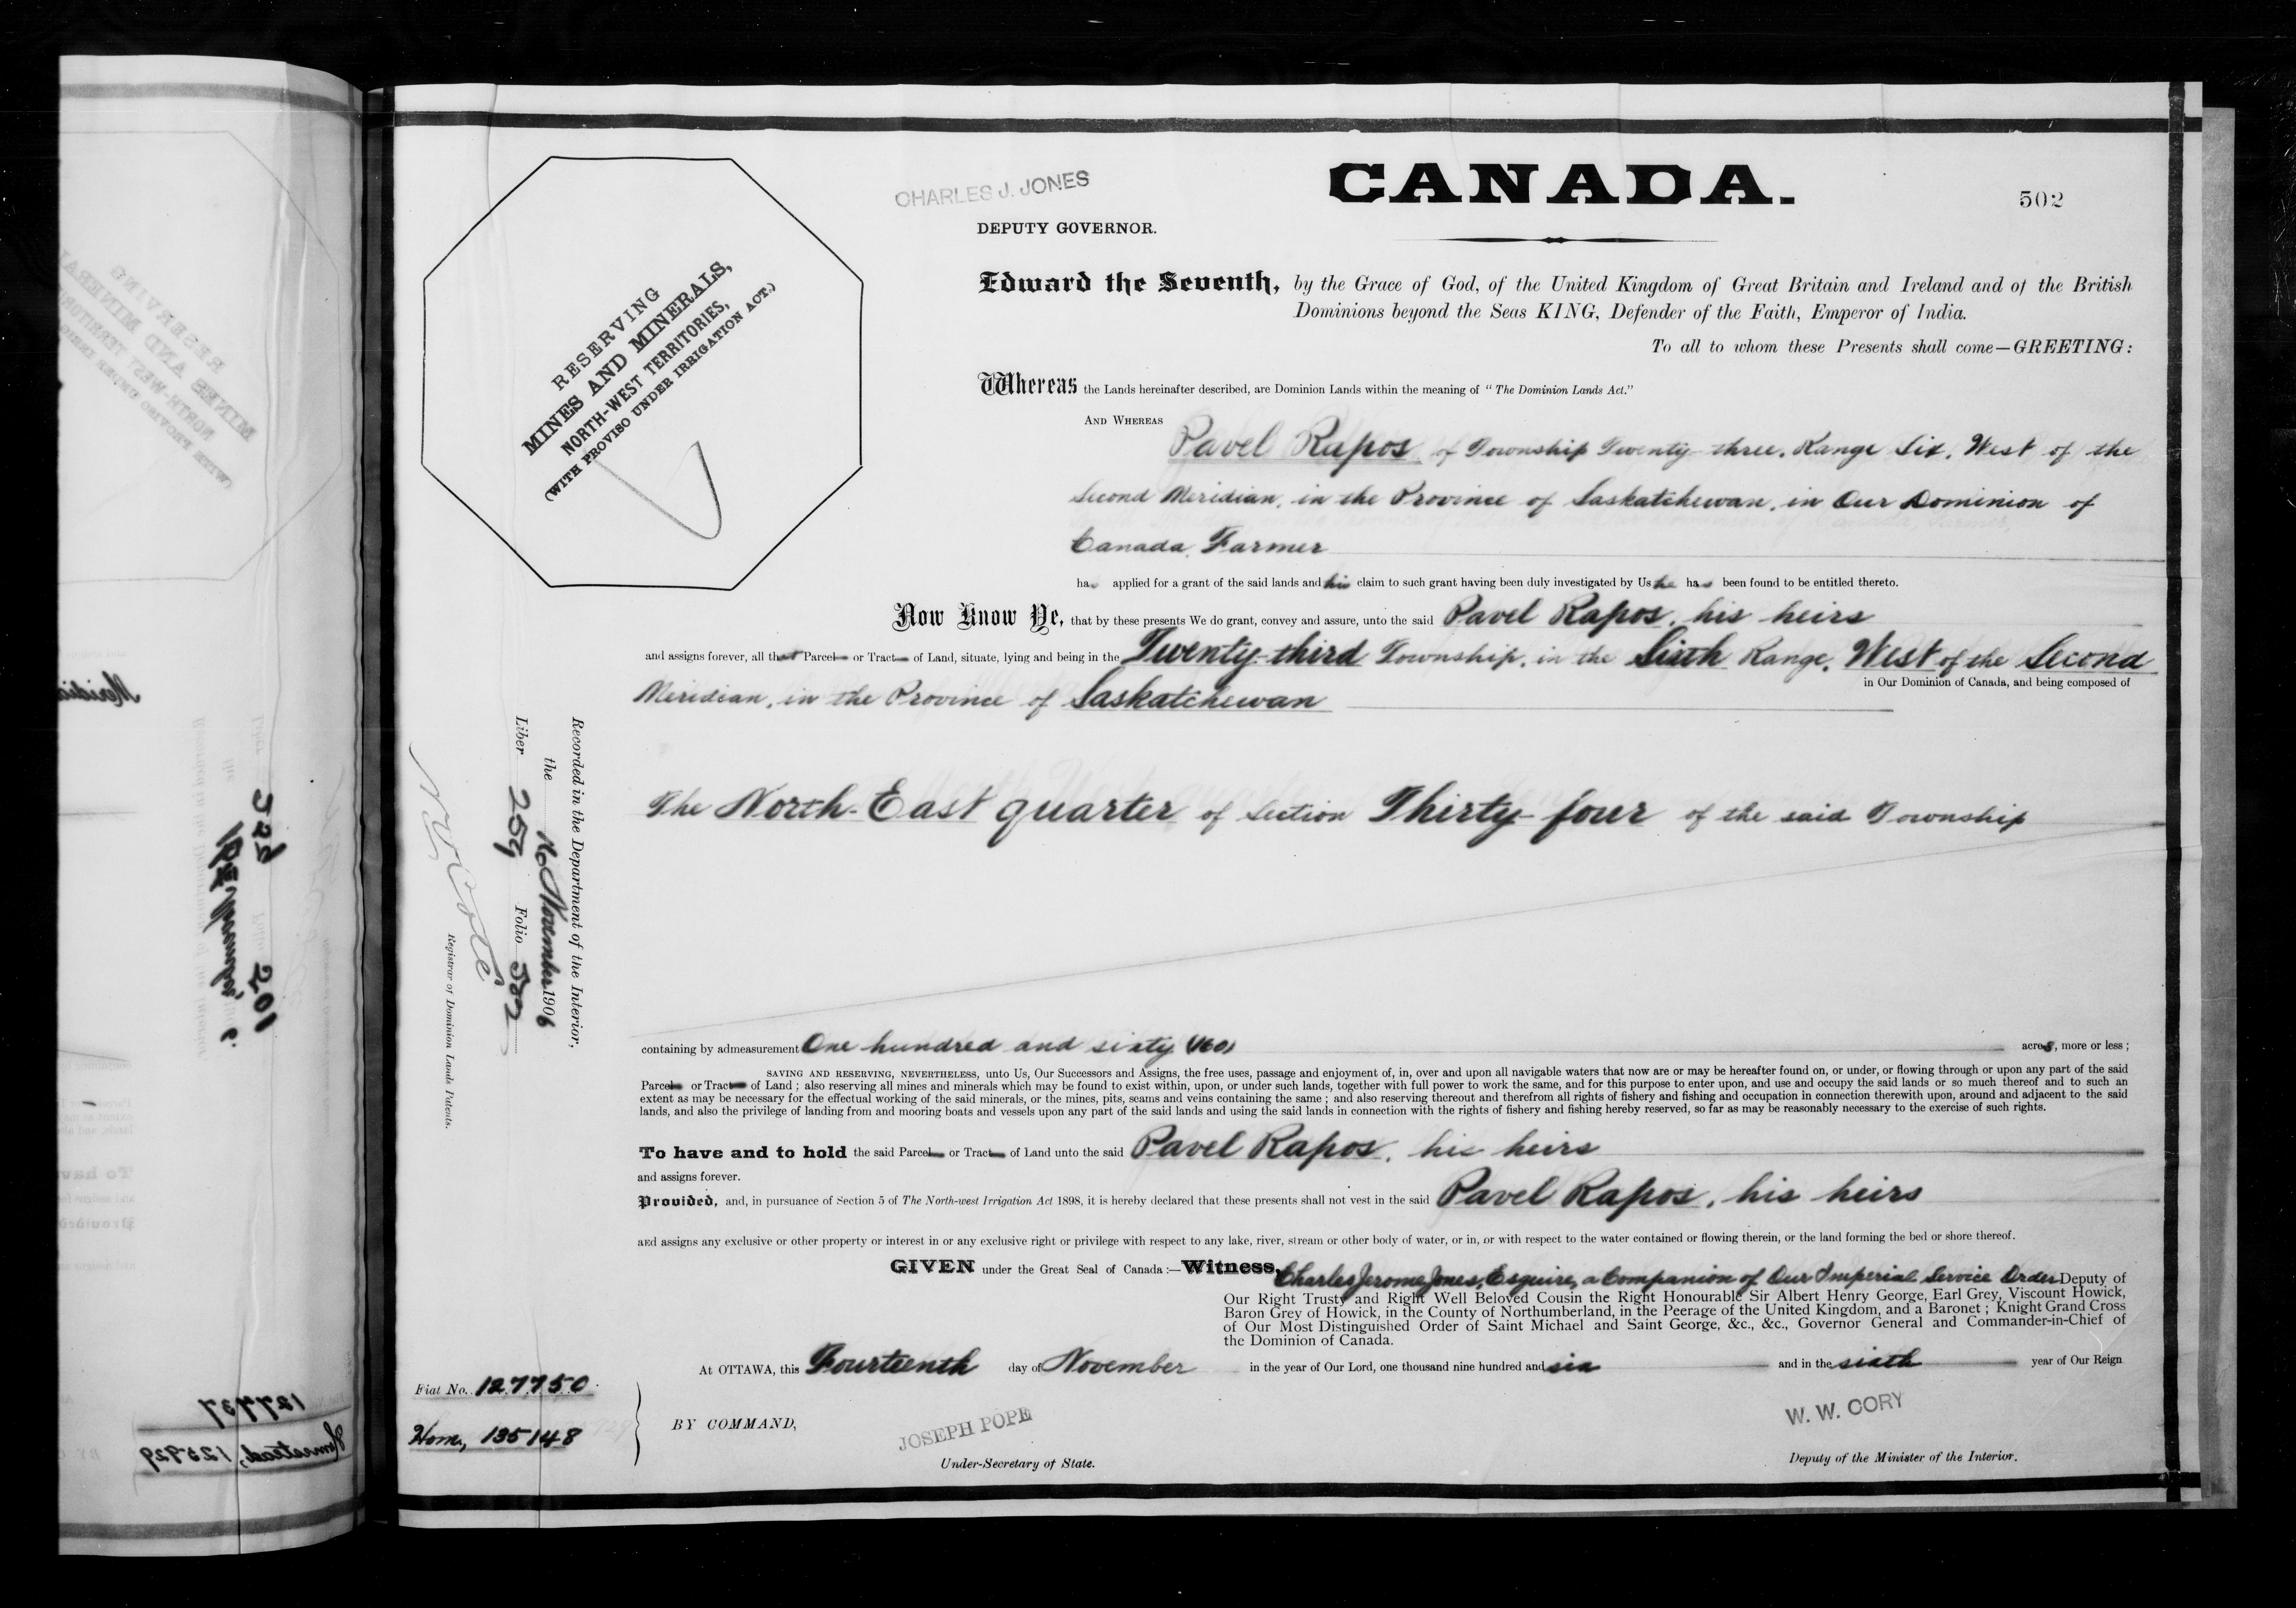 CANADA.
502
CHARLES J. JONES
DEPUTY GOVERNOR.
RESERVING
MINES AND MINERALS,
NORTH-WEST TERRITORIES,
(WITH PROVISO UNDER IRRIGATION ACT.)
Edward the Seventh, by the Grace of God, of the United Kingdom of Great Britain and Ireland and of the British
Dominions beyond the Seas KING, Defender of the Faith, Emperor of India.
To all to whom these Presents shall come—GREETING:
Whereas the Lands hereinafter described, are Dominion Lands within the meaning of "The Dominion Lands Act."
AND WHEREAS
Pavel Rapos of Township Twenty-three, Range Six, West of the
Second Meridian, in the Province of Saskatchewan, in Our Dominion of
Canada, Farmer
has applied for a grant of the said lands and his claim to such grant having been duly investigated by Us he has been found to be entitled thereto.
Now Know Ye, that by these presents We do grant, convey and assure, unto the said Pavel Rapos, his heirs
and assigns forever, all that Parcel or Tract of Land, situate, lying and being in the Twenty-third Township, in the Sixth Range, West of the Second
in Our Dominion of Canada, and being composed of
Meridian, in the Province of Saskatchewan
The North-East quarter of Section Thirty-four of the said Township
containing by admeasurement One hundred and sixty (160) acres, more or less;
SAVING AND RESERVING, NEVERTHELESS, unto Us, Our Successors and Assigns, the free uses, passage and enjoyment of, in, over and upon all navigable waters that now are or may be hereafter found on, or under, or flowing through or upon any part of the said
Parcel or Tract of Land; also reserving all mines and minerals which may be found to exist within, upon, or under such lands, together with full power to work the same, and for this purpose to enter upon, and use and occupy the said lands or so much thereof and to such an
extent as may be necessary for the effectual working of the said minerals, or the mines, pits, seams and veins containing the same; and also reserving thereout and therefrom all rights of fishery and fishing and occupation in connection therewith upon, around and adjacent to the said
lands, and also the privilege of landing from and mooring boats and vessels upon any part of the said lands and using the said lands in connection with the rights of fishery and fishing hereby reserved, so far as may be reasonably necessary to the exercise of such rights.
To have and to hold the said Parcel or Tract of Land unto the said Pavel Rapos, his heirs
and assigns forever.
Provided, and, in pursuance of Section 5 of The North-west Irrigation Act 1898, it is hereby declared that these presents shall not vest in the said Pavel Rapos, his heirs
and assigns any exclusive or other property or interest in or any exclusive right or privilege with respect to any lake, river, stream or other body of water, or in, or with respect to the water contained or flowing therein, or the land forming the bed or shore thereof.
GIVEN under the Great Seal of Canada:—Witness, Charles Jerome Jones, Esquire, a Companion of Our Imperial Service Order Deputy of
Our Right Trusty and Right Well Beloved Cousin the Right Honourable Sir Albert Henry George, Earl Grey, Viscount Howick,
Baron Grey of Howick, in the County of Northumberland, in the Peerage of the United Kingdom, and a Baronet; Knight Grand Cross
of Our Most Distinguished Order of Saint Michael and Saint George, &c., &c., Governor General and Commander-in-Chief of
the Dominion of Canada.
At OTTAWA, this Fourteenth day of November in the year of Our Lord, one thousand nine hundred and six and in the sixth year of Our Reign
BY COMMAND,
JOSEPH POPE
Under-Secretary of State.
W. W. CORY
Deputy of the Minister of the Interior.
Fiat No. 127750
Hom, 135148
Recorded in the Department of the Interior,
the 16 November 1906
Liber 259 Folio 502
N O Coté
Registrar of Dominion Lands Patents.
127737
Homestead, 125929
201